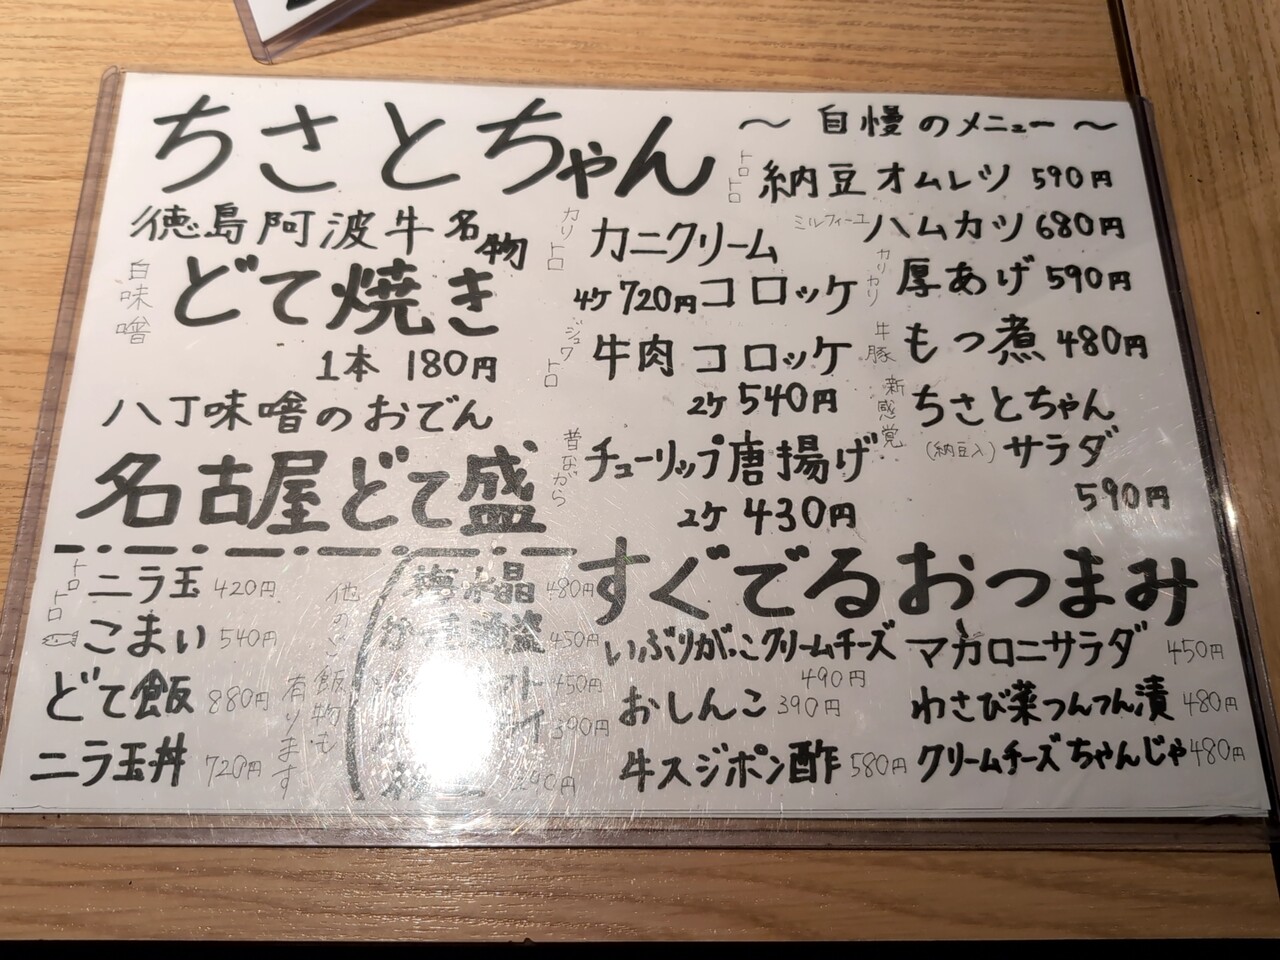 ちさとちゃん
～ 自慢のメニュー ～
徳島阿波牛名物
白味噌
どて焼き
1本 180円
八丁味噌のおでん
名古屋どて盛
カリトロ
カニクリーム
コロッケ
4ケ720円
ジュワトロ
牛肉コロッケ
2ケ 540円
昔ながら
チューリップ唐揚げ
2ケ 430円
トロトロ
納豆オムレツ 590円
ミルフィーユ
ハムカツ 680円
カリカリ
厚あげ 590円
牛豚
もつ煮 480円
新感覚
ちさとちゃん
(納豆入) サラダ
590円
トロトロ
ニラ玉 420円
こまい 540円
どて飯 880円
ニラ玉丼 720円
他のご飯物も
有ります
480円
450円
450円
390円
すぐでるおつまみ
いぶりがっこクリームチーズ
490円
おしんこ 390円
牛スジポン酢 580円
マカロニサラダ 450円
わさび菜つんつん漬 480円
クリームチーズちゃんじゃ 480円